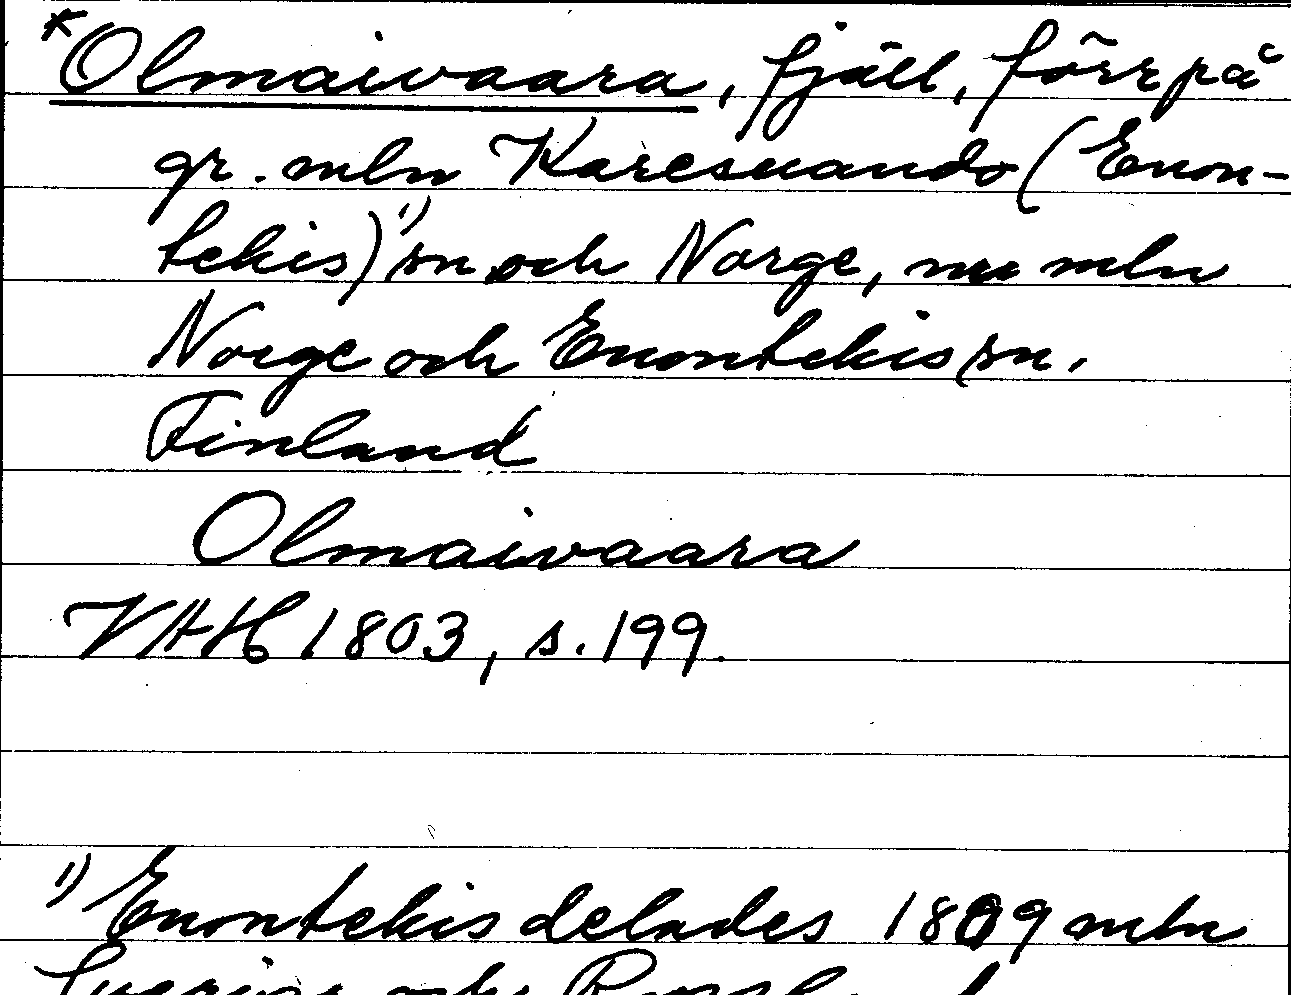 *Olmaivaara, fjäll, förr på
gr. mln Karesuando (Enon-
tekis)¹⁾ sn och Norge, nu mln
Norge och Enontekis sn,
Finland
Olmaivaara
VAH 1803, s. 199.
¹⁾ Enontekis delades 1809 mln
Sverige och Ryssland